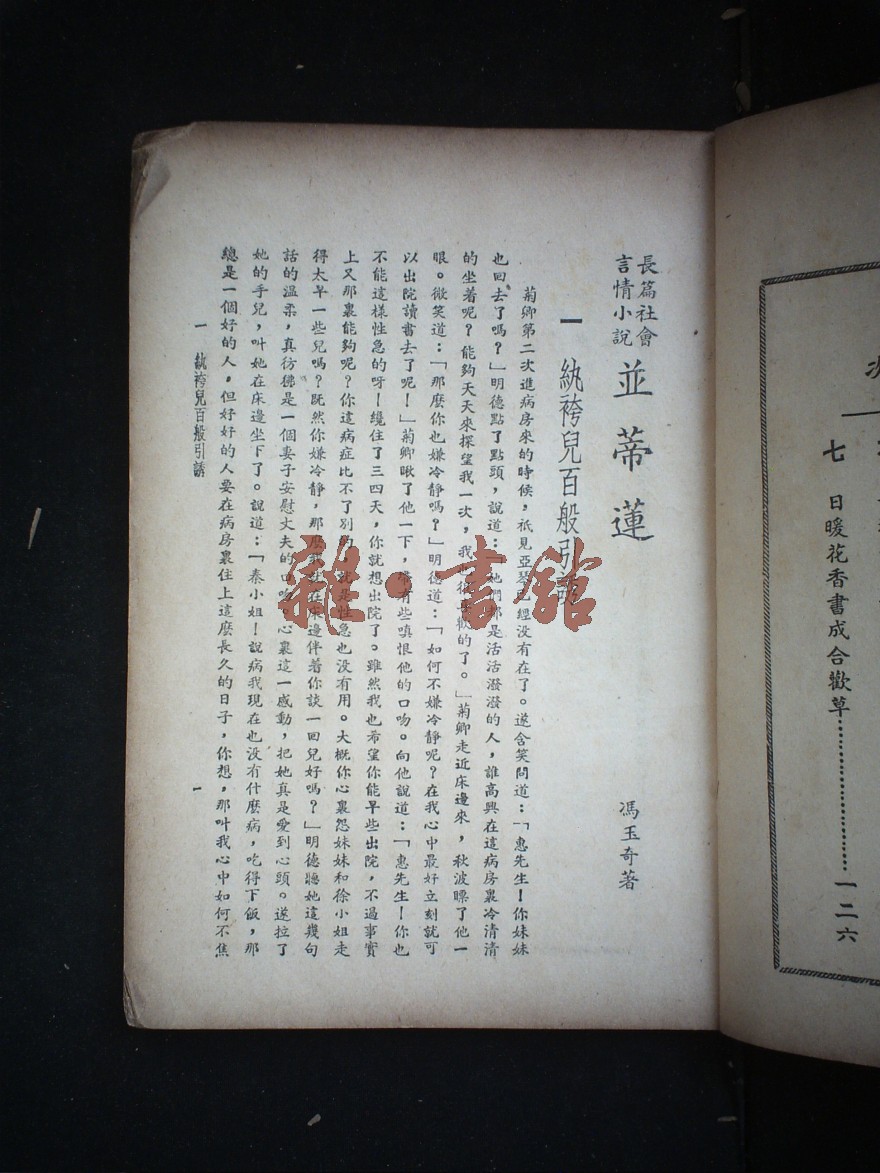 次
七　日暖花香書成合歡草……………………一二六
長篇社會
言情小說
並蒂蓮
馮玉奇著
一　紈袴兒百般引誘
菊卿第二次進病房來的時候，祇見亞琴已經没有在了。遂含笑問道：「惠先生！你妹妹
也回去了嗎？」明德點了點頭，說道：「她們都是活活潑潑的人，誰高興在這病房裏冷清清
的坐着呢？能夠天天來探望我一次，我也很喜歡的了。」菊卿走近床邊來，秋波瞟了他一
眼。微笑道：「那麼你也嫌冷靜嗎？」明德道：「如何不嫌冷靜呢？在我心中最好立刻就可
以出院讀書去了呢！」菊卿瞅了他一下，帶有些嗔恨他的口吻。向他說道：「惠先生！你也
不能這樣性急的呀！纔住了三四天，你就想出院了。雖然我也希望你能早些出院，不過事實
上又那裏能夠呢？你這病症比不了別的，就是性急也没有用。大概你心裏怨妹妹和徐小姐走
得太早一些兒嗎？既然你嫌冷靜，那麼我就在床邊伴着你談一回兒好嗎？」明德聽她這幾句
話的溫柔，真彷彿是一個妻子安慰丈夫的口吻。心裏這一感動，把她真是愛到心頭。遂拉了
她的手兒，叫她在床邊坐下了。說道：「秦小姐！說病我現在也没有什麼病，吃得下飯，那
總是一個好的人，但好好的人要在病房裏住上這麼長久的日子，你想，那叫我心中如何不焦
一　紈袴兒百般引誘
一
雜·書館